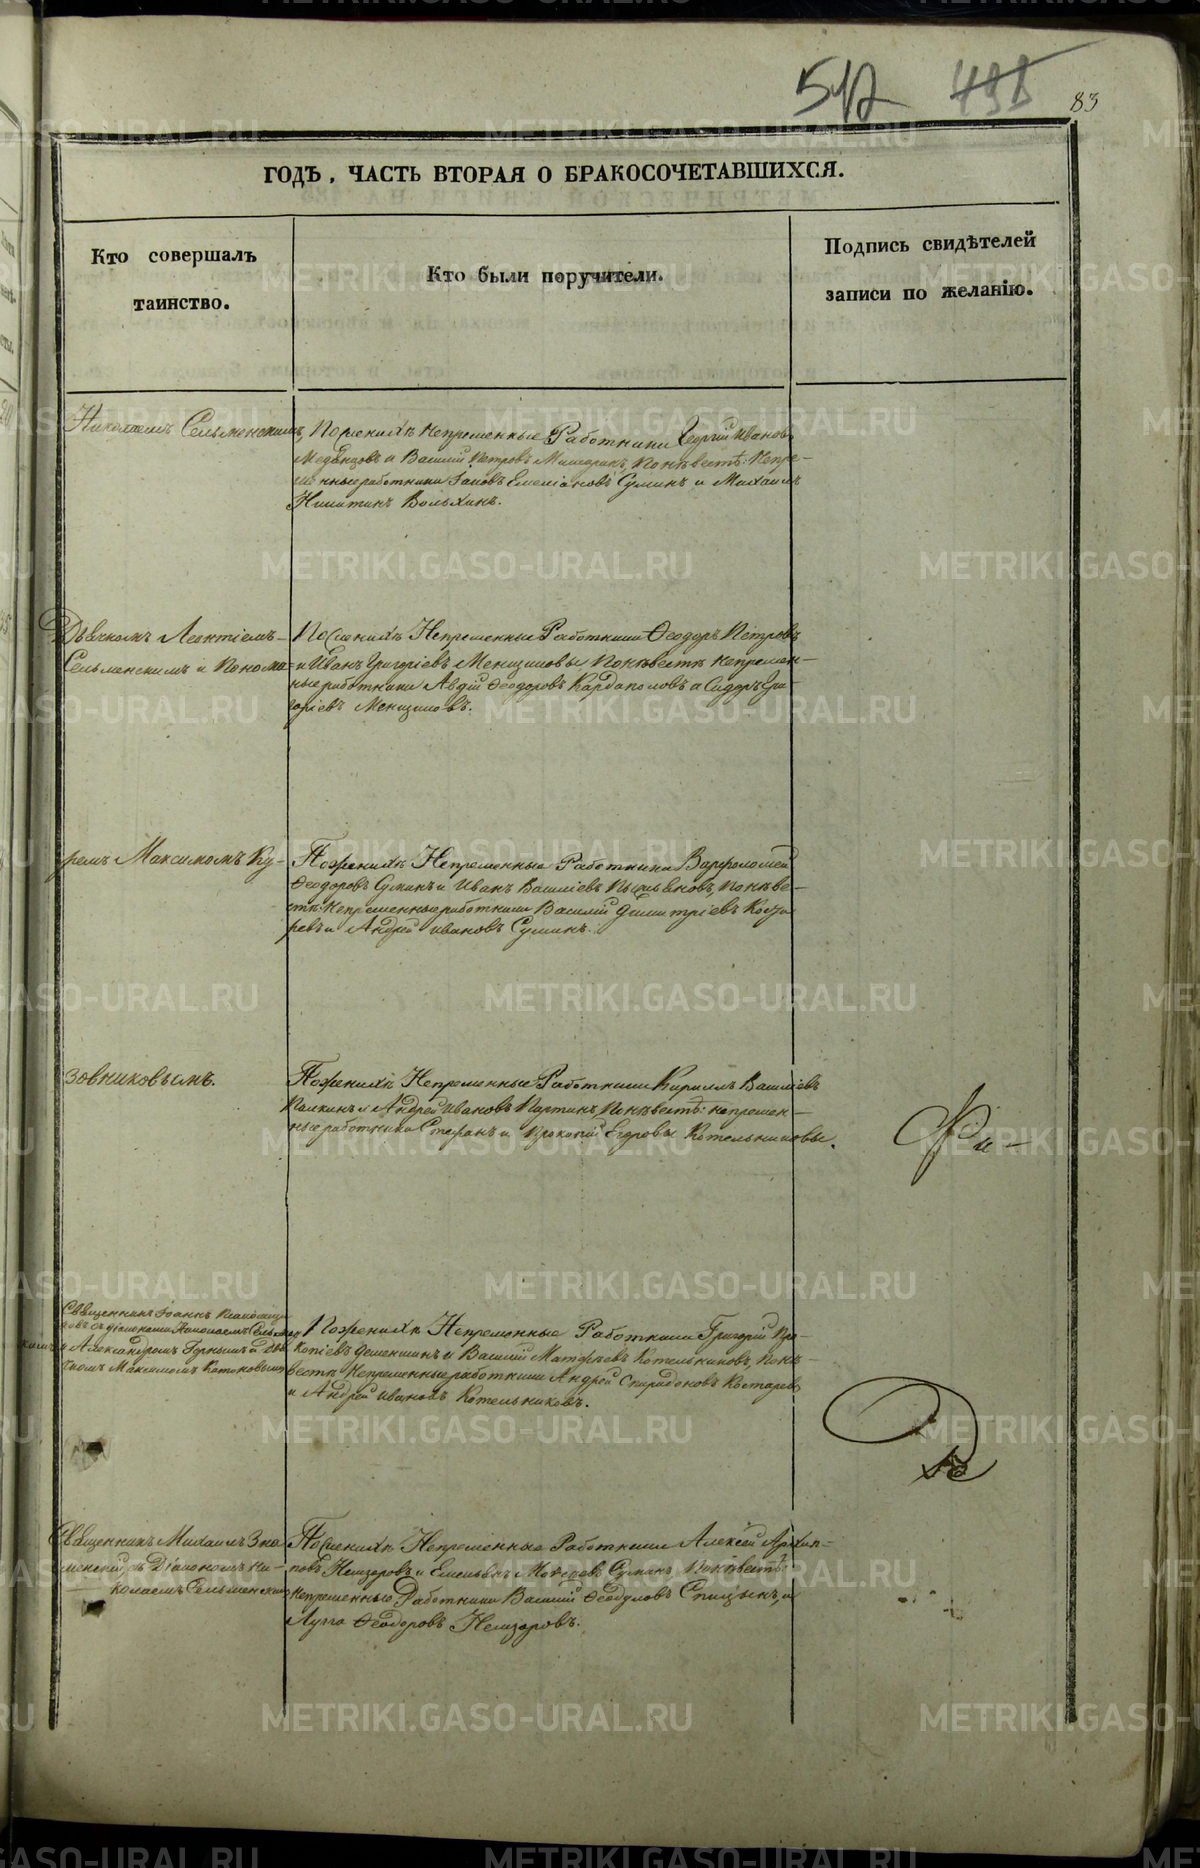 512 498 83
ГОДѢ, ЧАСТЬ ВТОРАЯ О БРАКОСОЧЕТАВШИХСЯ.
Кто совершалъ таинство.
Кто были поручители.
Подпись свидѣтелей записи по желанію.
Николаемъ Сельменскимъ,
По женихѣ Непременные Работники Георгій Ивановъ
и Василій Петровъ По невестѣ: Непре-
менные работники Іаковъ Емеліановъ Суминъ и Михаилъ
Никитинъ
Дьячкомъ Леонтіемъ
Сельменскимъ и Понома-
По женихѣ Непременные Работники Ѳеодоръ Петровъ
и Иванъ Григоріевъ Менщиковы По невестѣ Непремен-
ные работники Авдій Ѳеодоровъ Кардаполовъ и Сидоръ Гри-
горіевъ Менщиковъ.
ремъ Максимомъ Ку-
По женихѣ Непременные Работники Варфоломей
Ѳеодоровъ Суминъ и Иванъ Василіевъ По неве-
стѣ: Непременные работники Василій Димитріевъ
и Андрей Ивановъ Суминъ.
зовниковымъ.
По женихѣ Непременные Работники Кириллъ Василіевъ
и Андрей Ивановъ По невестѣ: непремен-
ные работники Стефанъ и Прокопій Егоровы Котельниковы.
Священникъ Іоаннъ
съ діаконами Николаемъ Сельмен-
скимъ и Александромъ Горнымъ и дья-
чкомъ Максимомъ
По женихѣ Непременные Работники Григорій Про-
копіевъ Деменшинъ и Василій Матфѣевъ Котельниковъ, По не-
вестѣ Непременные работники Андрей Спиридоновъ Костаревъ
и Андрей Ивановъ Котельниковъ.
Священникъ Михаилъ Зна-
менскій съ Діакономъ Ни-
колаемъ Сельменскимъ
По женихѣ Непременные Работники Алексей Архип-
повъ Немзоровъ и Емельянъ Суминъ, По невестѣ:
Непременные Работники Василій Ѳеодуловъ Спицынъ и
Лука Ѳеодоровъ Немзоровъ.
METRIKI.GASO-URAL.RU